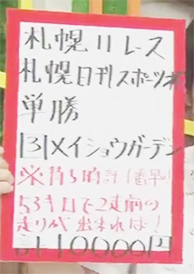 札幌11レース
札幌日刊スポーツ杯
単勝
13メイショウガーデン
※持ち時計1番早い
53キロで2走前の
走りが出来れば!
計10000円